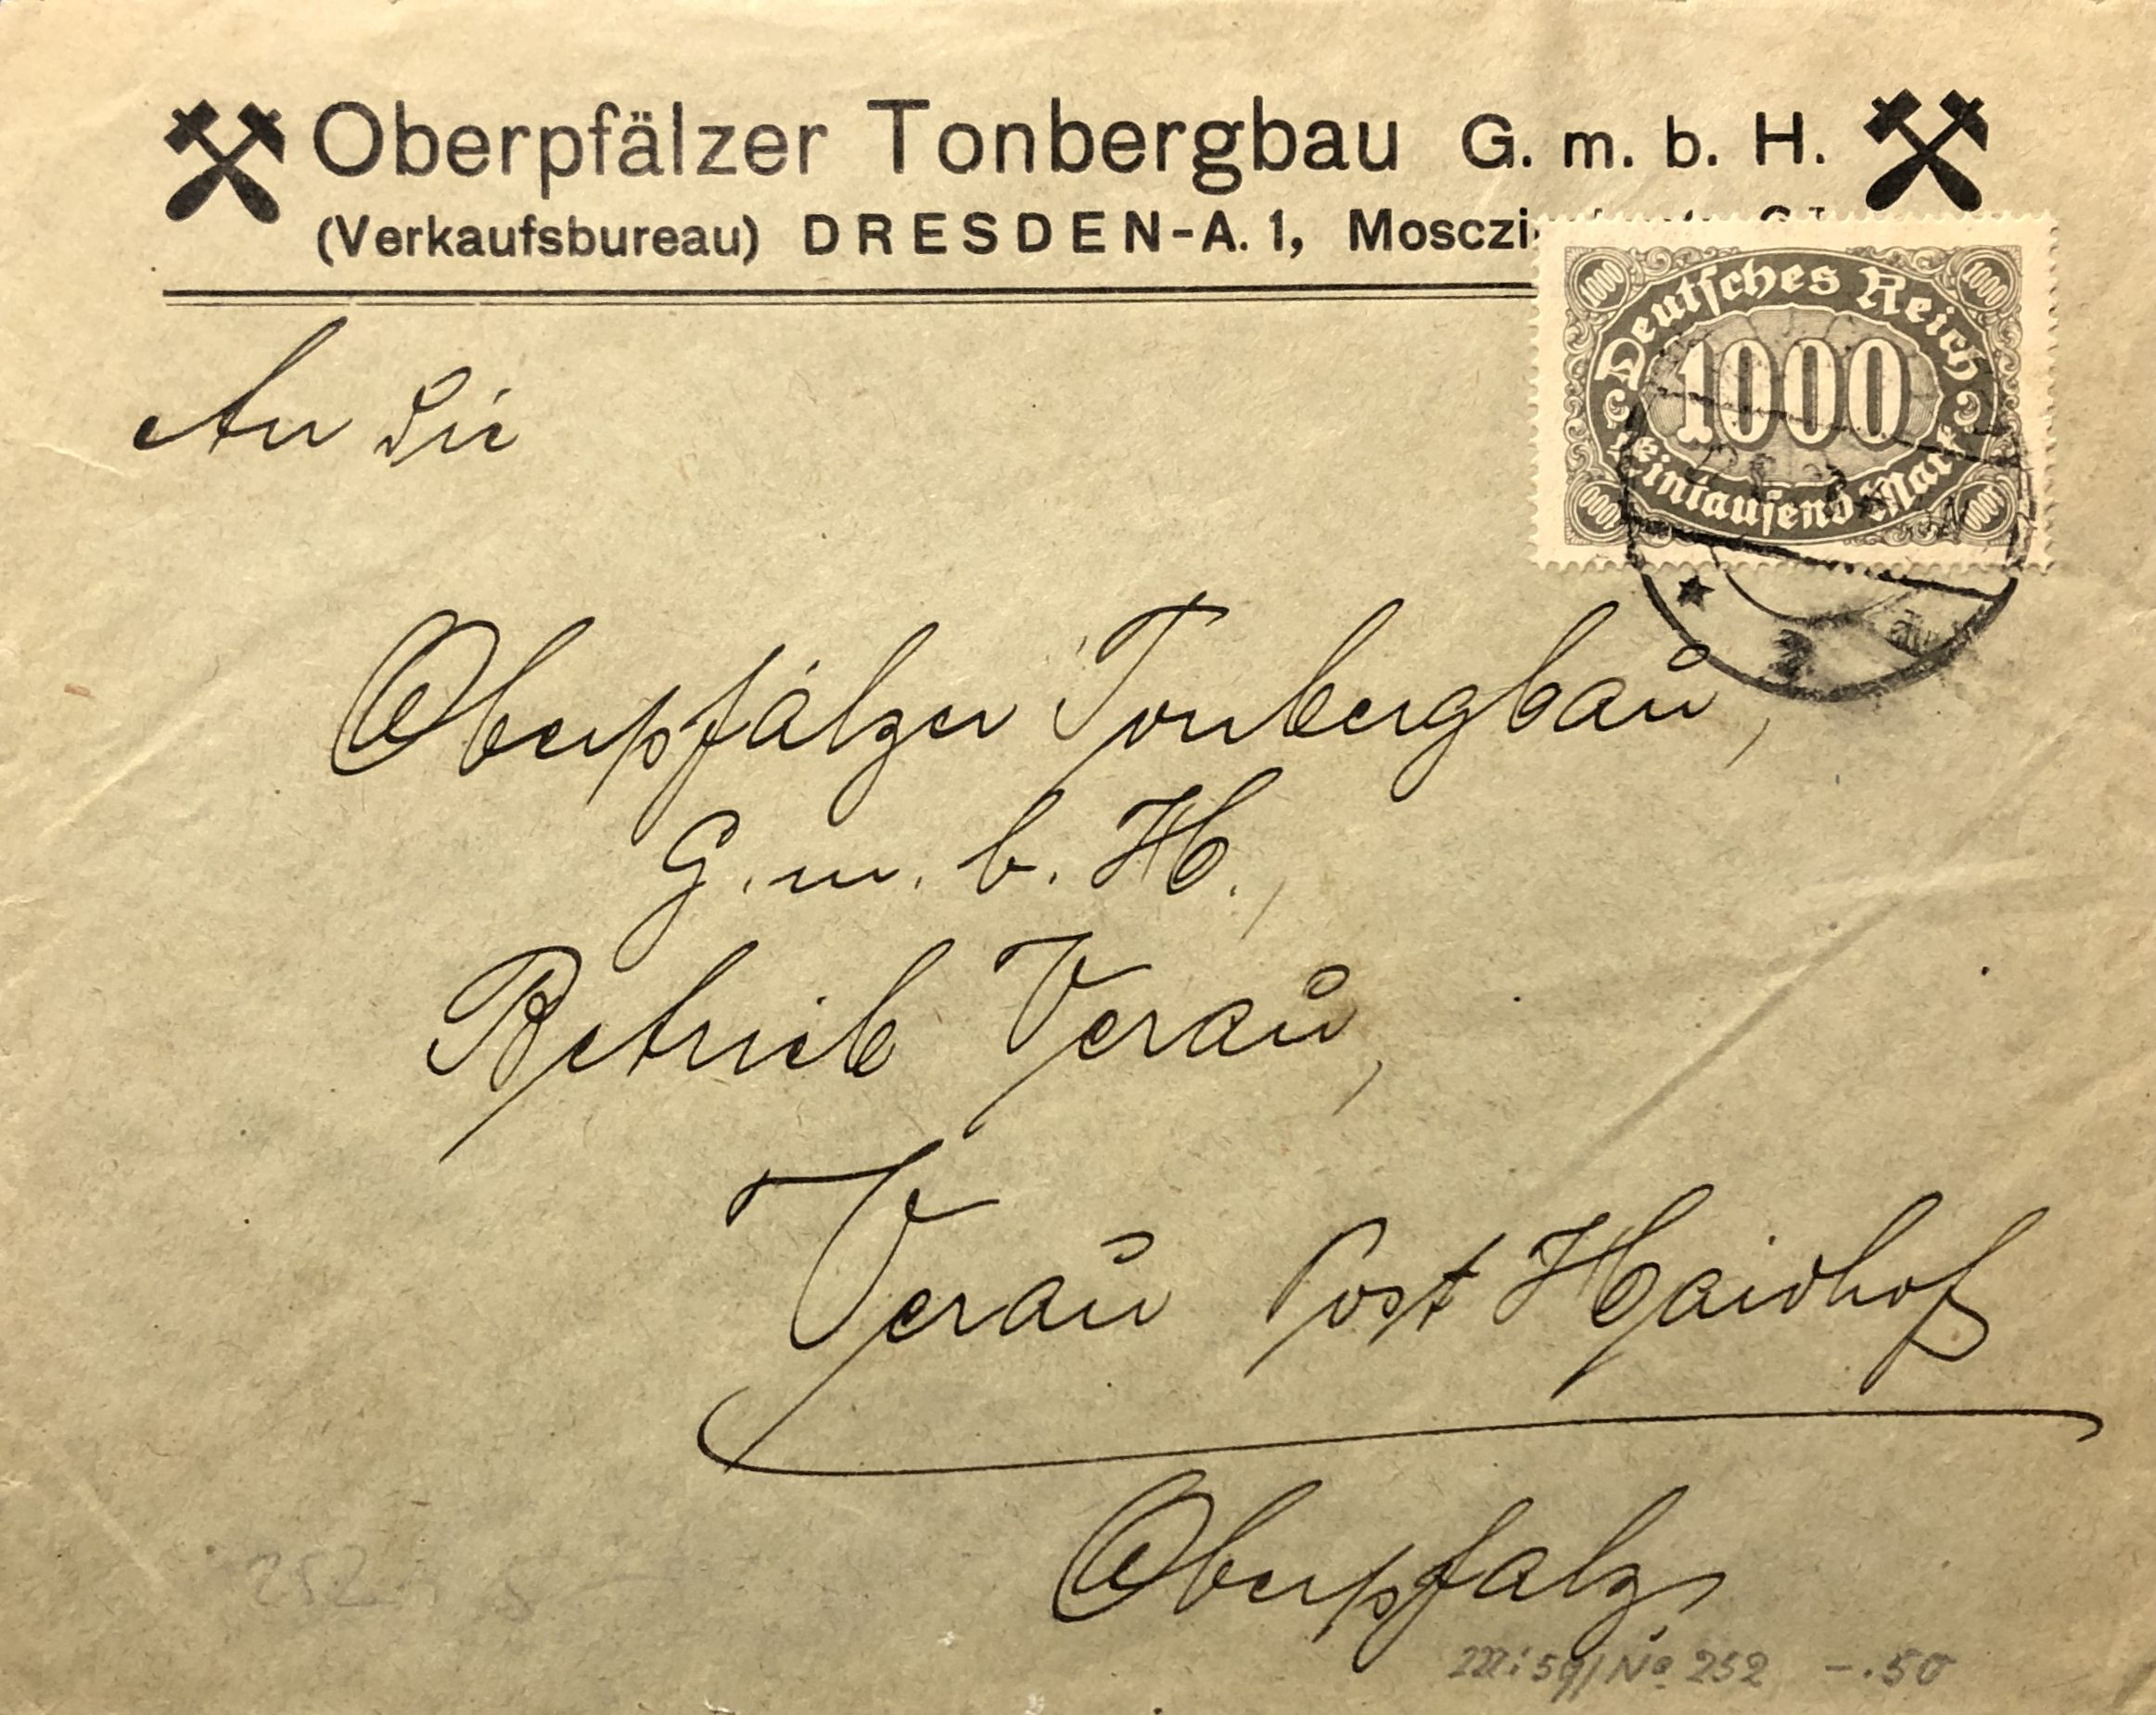 Oberpfälzer Tonbergbau G. m. b. H.
(Verkaufsbureau) DRESDEN-A. 1,
1000 1000
Deutsches Reich
1000
Eintausend Mark
1000 1000
An die
2
Oberpfälzer Tonbergbau,
G. m. b. H.,
Betrieb Verau,
Verau Post Haidhof
Oberpfalz
252
No 252 -.50